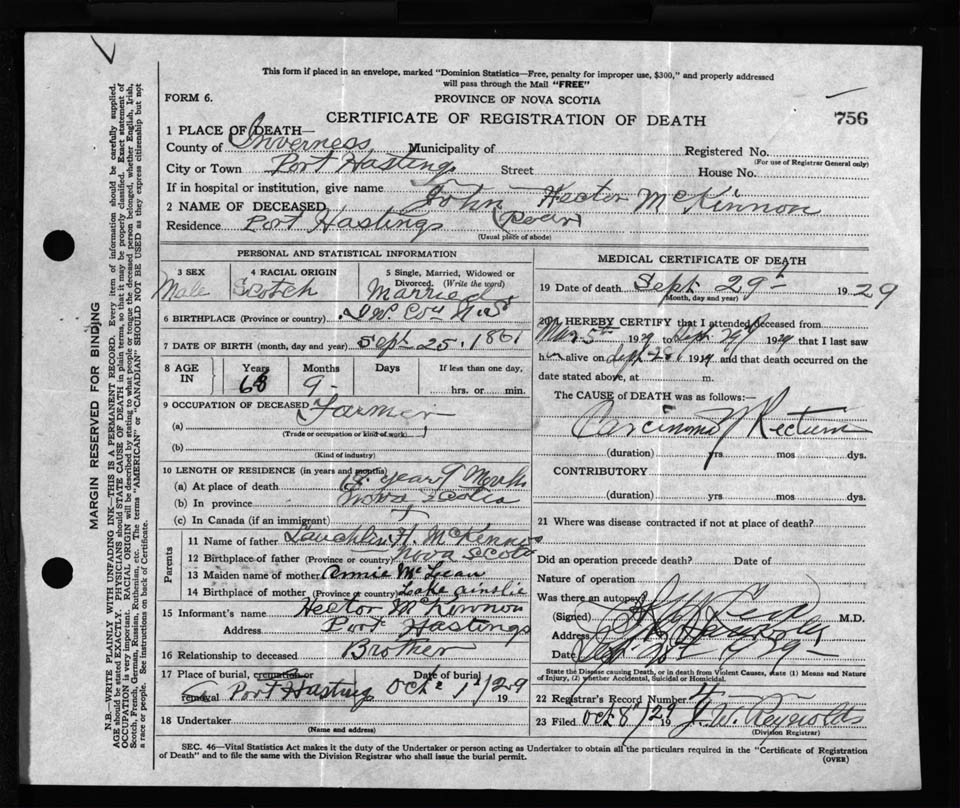 This form if placed in an envelope, marked "Dominion Statistics—Free, penalty for improper use, $300," and properly addressed
will pass through the Mail "FREE"
FORM 6.
PROVINCE OF NOVA SCOTIA
CERTIFICATE OF REGISTRATION OF DEATH
756
1 PLACE OF DEATH—
County of Inverness Municipality of Registered No.
(For use of Registrar General only)
City or Town Port Hastings Street House No.
If in hospital or institution, give name
2 NAME OF DECEASED John Hector McKinnon
Residence Port Hastings (Rear)
(Usual place of abode)
PERSONAL AND STATISTICAL INFORMATION
3 SEX Male
4 RACIAL ORIGIN Scotch
5 Single, Married, Widowed or Divorced. (Write the word) Married
6 BIRTHPLACE (Province or country) Inv Cou N.S.
7 DATE OF BIRTH (month, day and year) Sept 25. 1861
8 AGE IN Years 68 Months 9 Days If less than one day, hrs. or min.
9 OCCUPATION OF DECEASED Farmer
(a)
(Trade or occupation or kind of work)
(b)
(Kind of industry)
10 LENGTH OF RESIDENCE (in years and months)
(a) At place of death 68 years 9 Months
(b) In province Nova Scotia
(c) In Canada (if an immigrant)
Parents
11 Name of father Lauchlin H. McKinnon
12 Birthplace of father (Province or country) Nova Scotia
13 Maiden name of mother Annie McLean
14 Birthplace of mother (Province or country) Lake Ainslie
15 Informant's name Hector McKinnon
Address Port Hastings
16 Relationship to deceased Brother
17 Place of burial, cremation or removal Port Hastings Date of burial Oct 1 1929
18 Undertaker
(Name and address)
MEDICAL CERTIFICATE OF DEATH
19 Date of death Sept 29th 1929
(Month, day and year)
20 I HEREBY CERTIFY that I attended deceased from
Mar 5th 1929 to Sept 29 1929 that I last saw
him alive on Sept 1929 and that death occurred on the
date stated above, at m.
The CAUSE of DEATH was as follows:—
Carcinoma of Rectum
(duration) yrs mos dys.
CONTRIBUTORY
(duration) yrs mos dys.
21 Where was disease contracted if not at place of death?
Did an operation precede death? Date of
Nature of operation
Was there an autopsy
(Signed) M.D.
Address
Date
State the Disease causing Death, or in death from Violent Causes, state (1) Means and Nature
of Injury, (2) whether Accidental, Suicidal or Homicidal.
22 Registrar's Record Number
23 Filed Oct 8 1929 J. W. Reynolds
(Division Registrar)
SEC. 46—Vital Statistics Act makes it the duty of the Undertaker or person acting as Undertaker to obtain all the particulars required in the "Certificate of Registration
of Death" and to file the same with the Division Registrar who shall issue the burial permit.
(OVER)
MARGIN RESERVED FOR BINDING
N.B.—WRITE PLAINLY WITH UNFADING INK—THIS IS A PERMANENT RECORD. Every item of information should be carefully supplied.
AGE should be stated EXACTLY. PHYSICIANS should STATE CAUSE OF DEATH in plain terms, so that it may be properly classified. Exact statement of
OCCUPATION is very important. RACIAL ORIGIN will be described by stating to what people or tongue the deceased person belonged, whether English, Irish,
Scotch, French, German, Russian, Ruthenian, etc. The terms "AMERICAN" or "CANADIAN" SHOULD NOT BE USED as they express citizenship but not
a race or people. See instructions on back of Certificate.